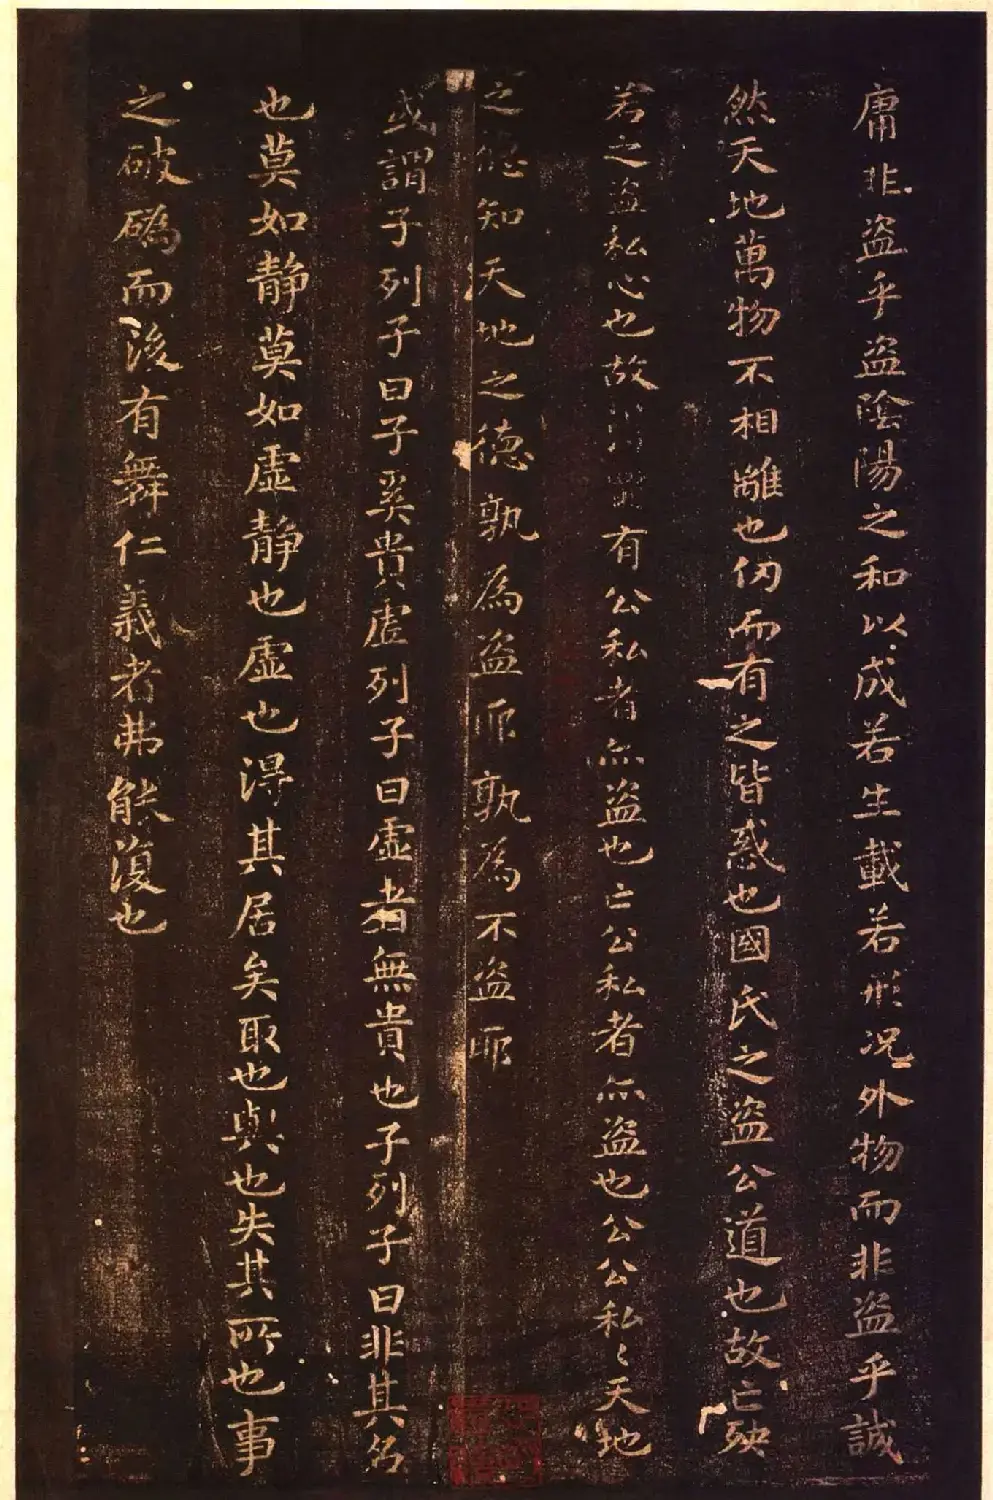 庸非盗乎盗陰陽之和以成若生載若形况外物而非盗乎誠
然天地萬物不相離也仞而有之皆惑也國氏之盗公道也故亡殃
若之盗私心也故有公私者亦盗也亡公私者亦盗也公公私〻天地
之德知天地之德孰為盗耶孰為不盗耶
或謂子列子曰子奚貴虚列子曰虚者無貴也子列子曰非其名
也莫如静莫如虚静也虚也得其居矣取也與也失其所也事
之破䃣而後有舞仁義者弗能復也